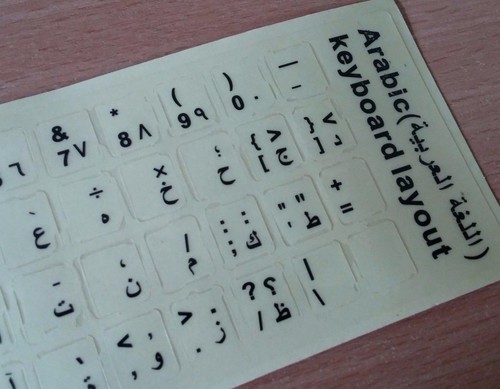 Arabic(اللغة العربية)
keyboard layout
&
7 ٧
*
8 ٨
(
9 ٩
)
0 ٠
ع
÷
ه
×
خ
؛
ح
ج
د
+
=
ن
م
ك
ط
و
ز
؟
ظ /